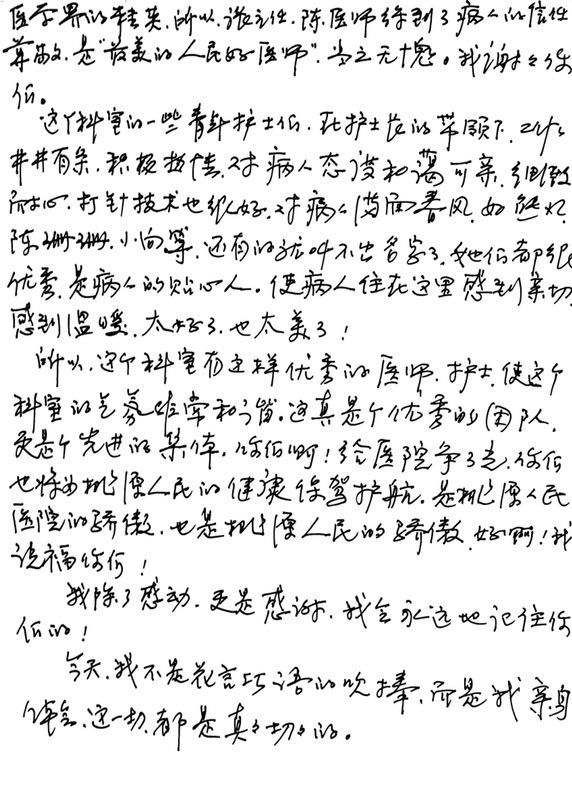 医学界的精英,所以,张主任、陈医师得到了病人的信任
尊敬,是"最美的人民好医师",当之无愧。我谢谢你
们。
这个科室的一些青年护士们,在护士长的带领下,工作
井井有条,积极热情,对病人态度和蔼可亲,细致
而耐心,打针技术也很好,对病人满面春风,如熊
陈珊珊,小向等,还有的就叫不出名字了,她们都很
优秀,是病人的贴心人。使病人住在这里感到亲切
感到温暖,太好了,也太美了!
所以,这个科室有这样优秀的医师、护士,使这个
科室的气氛非常和谐。这真是个优秀的团队,
更是个先进的集体,你们啊!给医院争了光,你们
也将为桃源人民的健康保驾护航,是桃源人民
医院的骄傲,也是桃源人民的骄傲,好啊!我
祝福你们!
我除了感动,更是感谢,我会永远地记住你
们的!
今天,我不是花言巧语的吹捧,而是我亲身
体会,这一切,都是真真切切的。